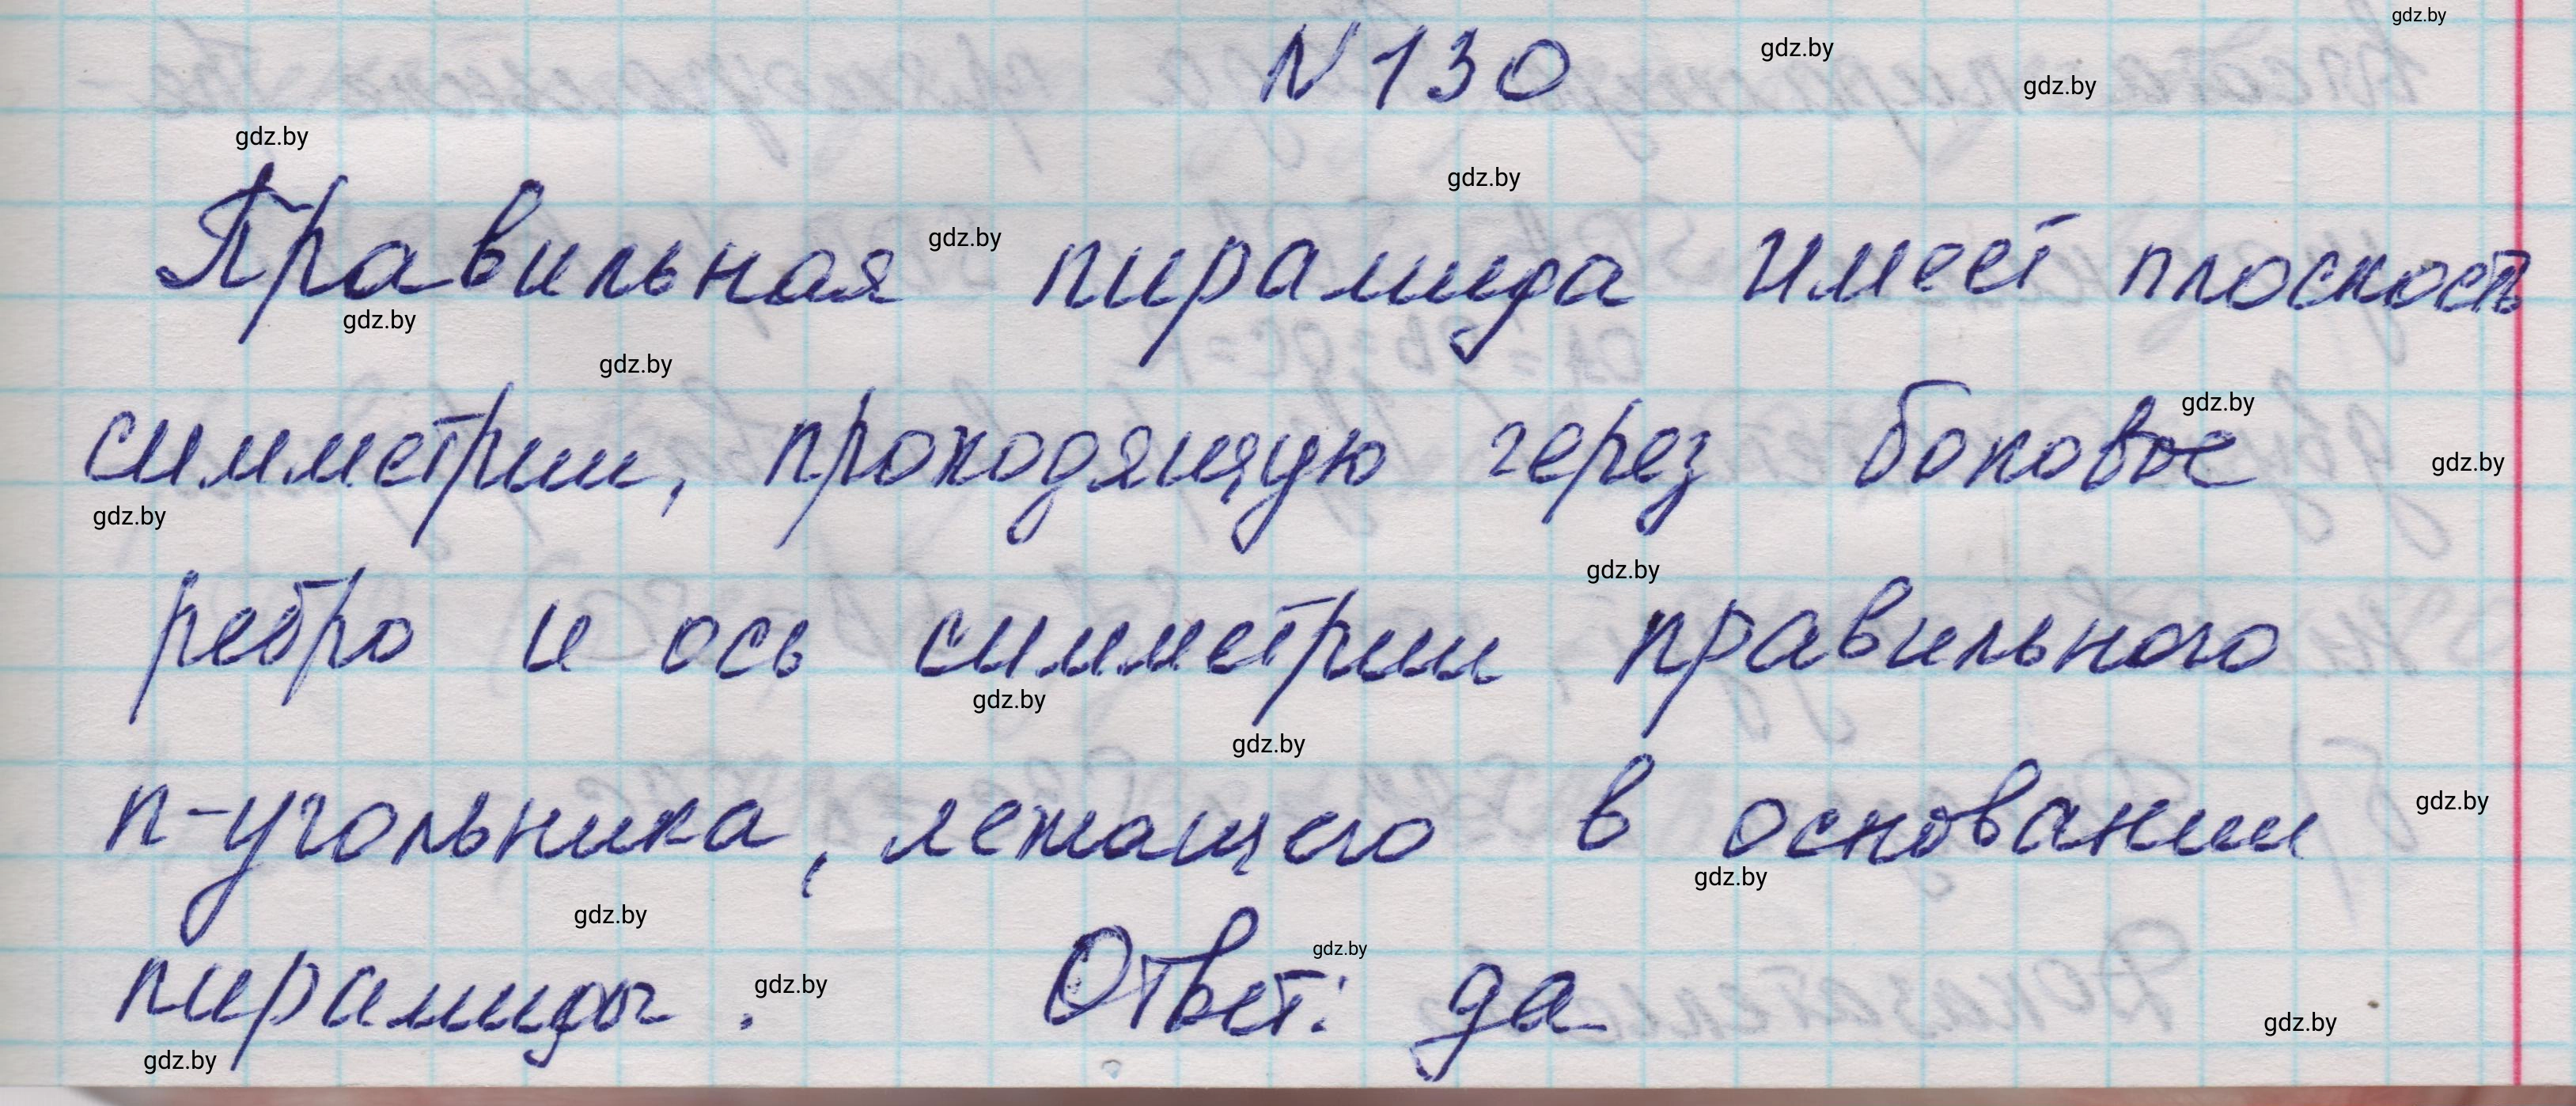 gdz.by
N 130 gdz.by
gdz.by
gdz.by
gdz.by
Правильная gdz.by пирамида имеет плоскость
gdz.by
gdz.by
gdz.by
симметрии, проходящую через боковое gdz.by
gdz.by
gdz.by
ребро и ось симметрии правильного
gdz.by
gdz.by
gdz.by
n-угольника, лежащего в основании
gdz.by
gdz.by
gdz.by
пирамиды. gdz.by Ответ: да
gdz.by
gdz.by